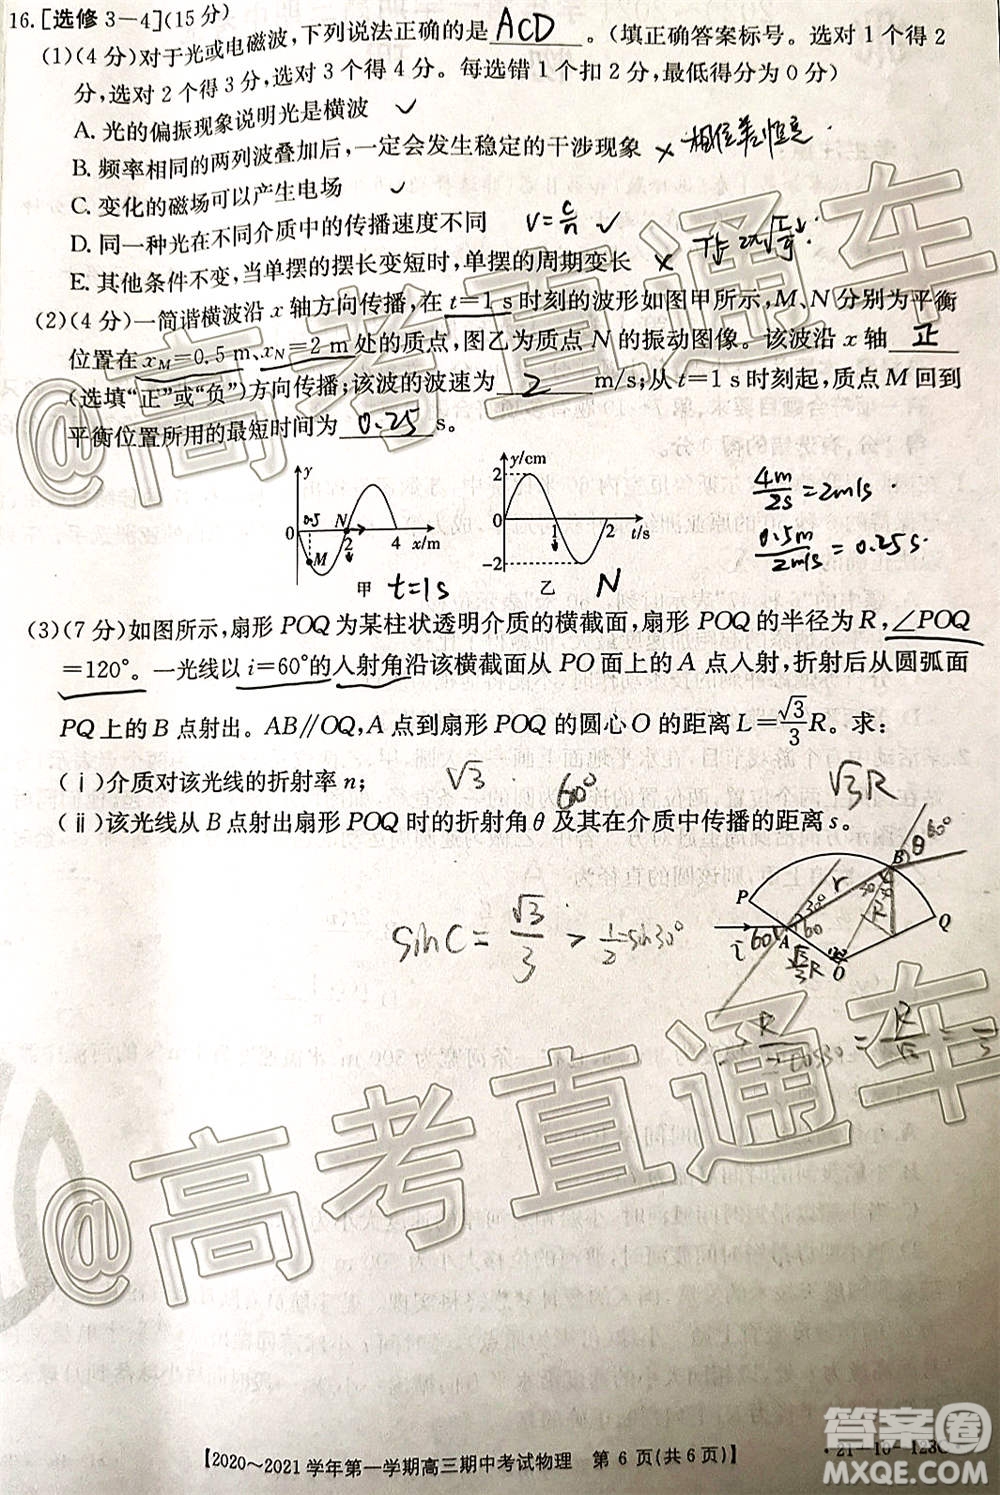 16.[选修3-4](15分)
(1)(4分)对于光或电磁波，下列说法正确的是 ACD 。(填正确答案标号。选对1个得2
分，选对2个得3分，选对3个得4分。每选错1个扣2分，最低得分为0分)
A.光的偏振现象说明光是横波 ✓
B.频率相同的两列波叠加后，一定会发生稳定的干涉现象 × 相位差恒定
C.变化的磁场可以产生电场 ✓
D.同一种光在不同介质中的传播速度不同 v=c/n ✓
E.其他条件不变，当单摆的摆长变短时，单摆的周期变长 ×
(2)(4分)一简谐横波沿x轴方向传播，在t=1s时刻的波形如图甲所示，M、N分别为平衡
位置在xM=0.5m、xN=2m处的质点，图乙为质点N的振动图像。该波沿x轴 正
(选填“正”或“负”)方向传播；该波的波速为 2 m/s；从t=1s时刻起，质点M回到
平衡位置所用的最短时间为 0.25 s。
y
0 0.5 M N 2 4 x/m
甲 t=1s
y/cm
2
0 1 2 t/s
-2
乙 N
4m/2s=2m/s
0.5m/2m/s=0.25s
(3)(7分)如图所示，扇形POQ为某柱状透明介质的横截面，扇形POQ的半径为R，∠POQ
=120°。一光线以i=60°的入射角沿该横截面从PO面上的A点入射，折射后从圆弧面
PQ上的B点射出。AB∥OQ，A点到扇形POQ的圆心O的距离L=√3/3R。求：
(ⅰ)介质对该光线的折射率n；
√3 60° √3R
(ⅱ)该光线从B点射出扇形POQ时的折射角θ及其在介质中传播的距离s。
B θ 60°
P r 30°
Q R
i 60° A 60
√3/3R O
sinC=√3/3>1/2=sin30°
【2020～2021学年第一学期高三期中考试物理 第6页(共6页)】
答案圈
MXQE.COM
@高考直通车
@高考直通车